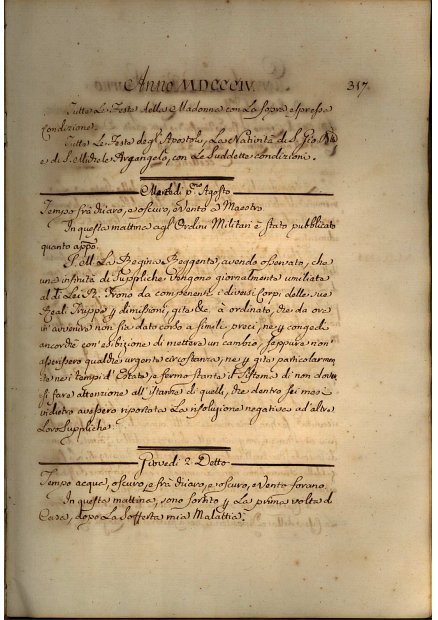 Anno MDCCCIV.
317
Tutte Le Feste della Madonna con La sopra espressa
condizione.
Tutte Le Feste degl' Apostoli, La Natività di S. Gio. Bta
e di S. Michele Arcangelo, con Le Suddette condizioni.
Mercoldi pmo Agosto
Tempo frà chiaro, e oscuro, e Vento a Maestro
In questa mattina agl' Ordini Militari è stato pubblicato
quanto appo
S. M. La Regina Reggente, avendo osservato, che
una infinità di Suppliche vengono giornalmente umiliate
al di Lei R. Trono da componenti i diversi Corpi delle sue
Reali Truppe p dimissioni, gite &c, à ordinato, che da ora
in' avvenire non sia dato corso a simili preci, ne p congedi
ancorchè con' esibizione di mettere un cambio, seppure non'
avessero qualche urgente circostanza, ne p gite particolarmen
te nei tempi d' Estate, e fermo stante il Sistema di non dover
si fare attenzione all' istanze di quelli, che dentro sei mesi
indietro avessero riportata La risoluzione negativa ad altre
Loro Suppliche.
Giovedi 2. Detto
Tempo acqua, oscuro, e frà chiaro, e oscuro, e Vento forano.
In questa mattina, sono sortito p La prima volta di
Casa, dopo La Sofferta mia Malattia.